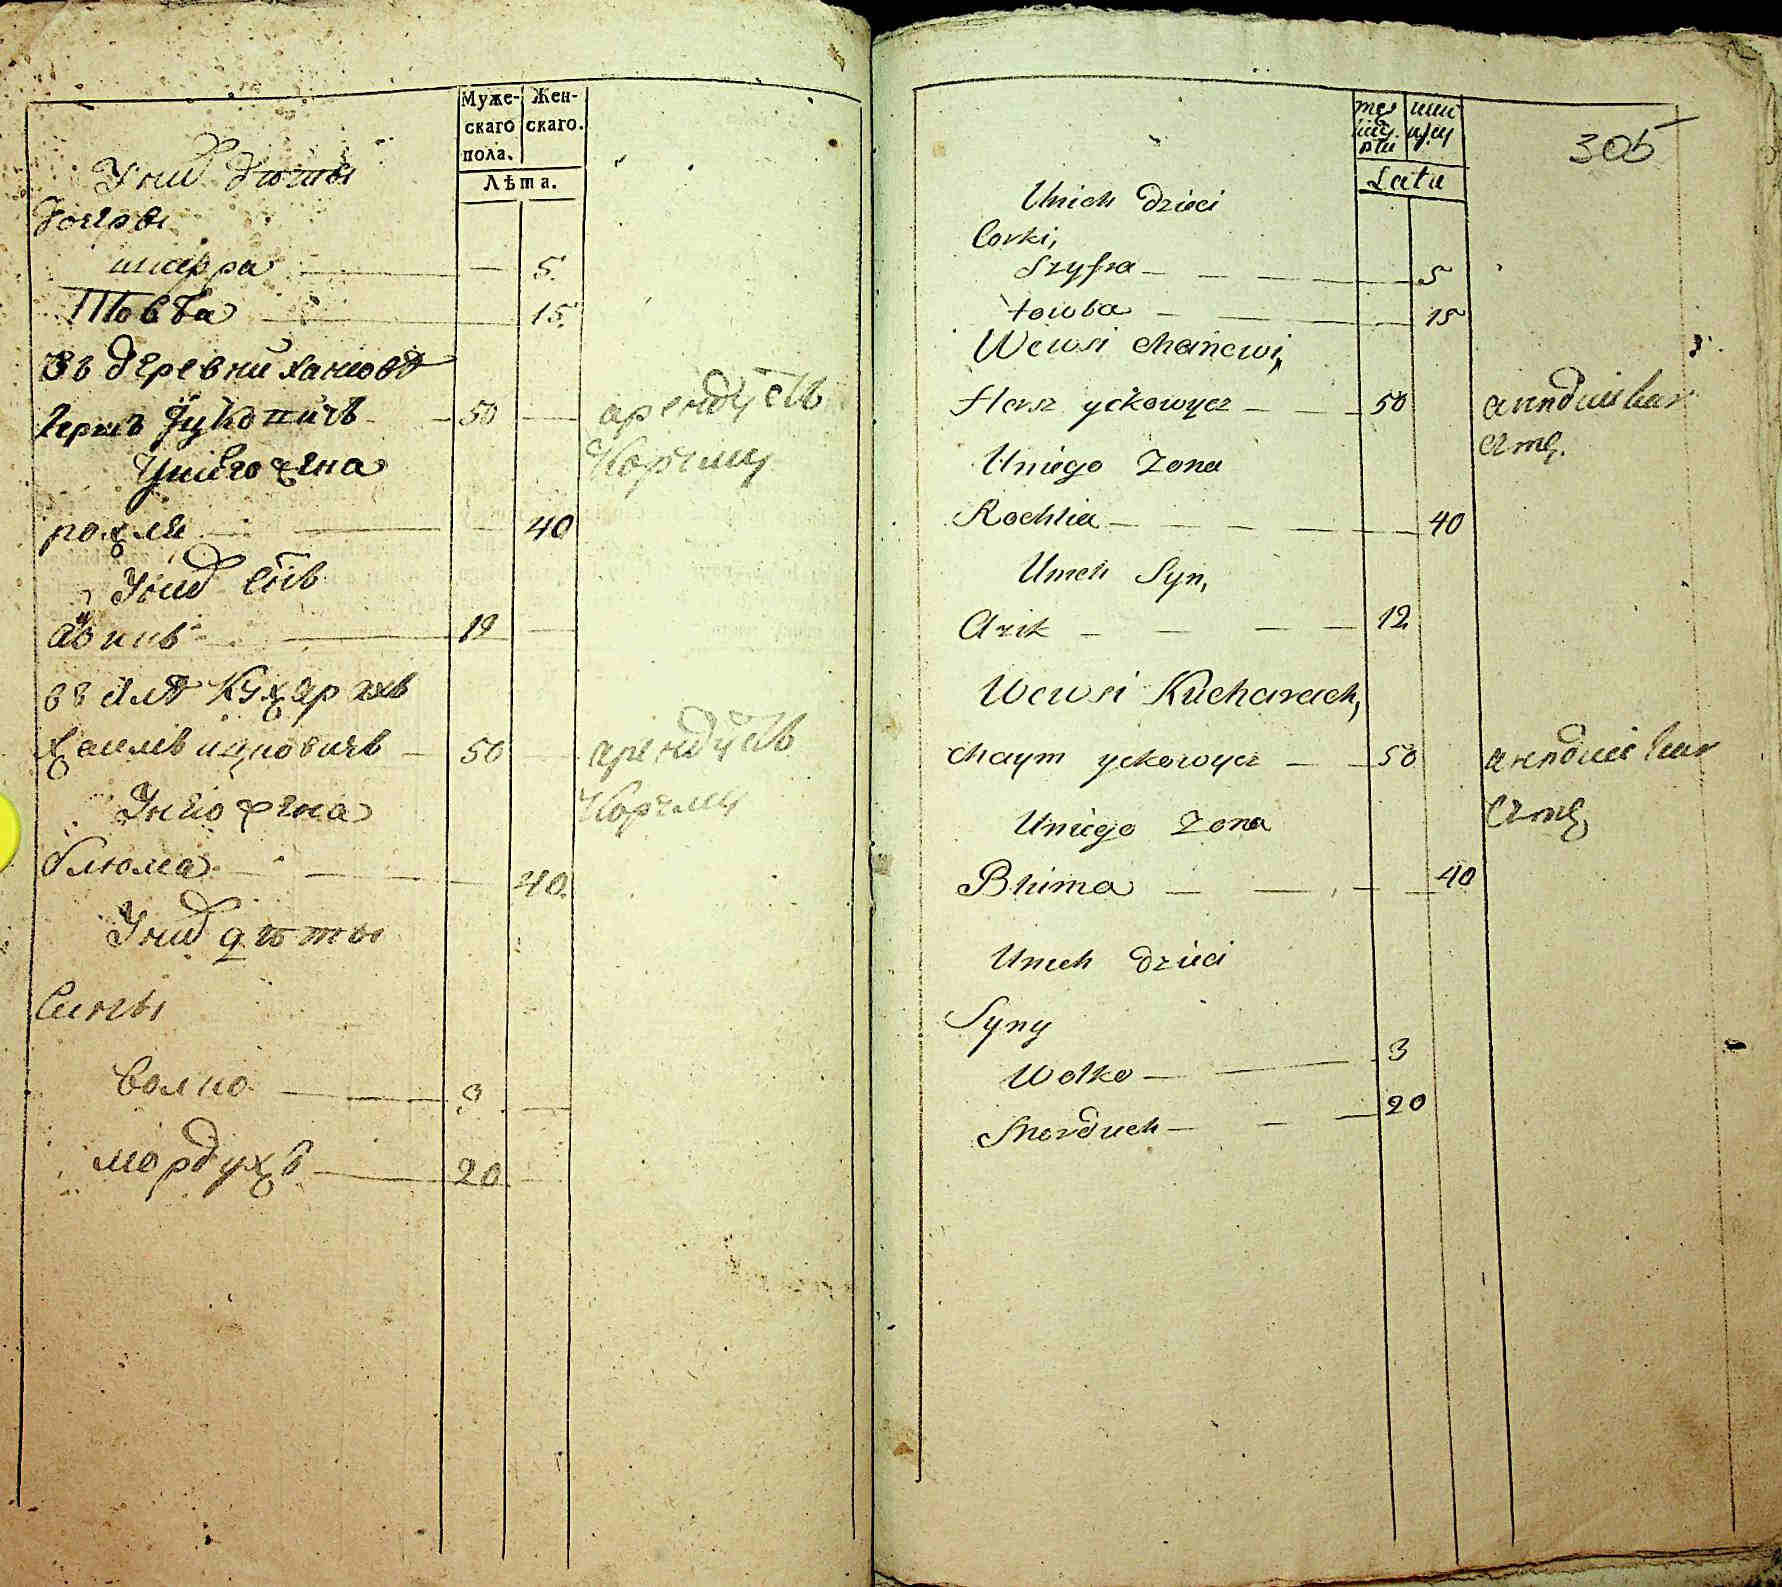 Муже- Жен-
скаго скаго.
пола.
Лѣта.
У них дѣти
дочеры
шифра 5
Товба 15
въ деревни ханове
Герш Ицковичъ 50 арендуетъ
Корчму
У него жена
рохля 40
У них сынъ
аизикъ 12
въ селѣ Кухарахъ
хаимъ ицковичъ 50 арендуетъ
Корчму
У него жена
блюма 40
У них дѣти
Сыны
волко 3
мордухъ 20
305
Lata
Unich dzieci
Corki,
Szyfra 5
towba 15
Wewsi chanewi,
Hersz yckowycz 50 arenduie kar
czmę.
Uniego zona
Rochlia 40
Unich Syn,
Azik 12
Wewsi Kucharach,
Chaym yckowycz 50 arenduie kar
czmę
Uniego zona
Bluma 40
Unich dzieci
Syny
Wolko 3
Morduch 20